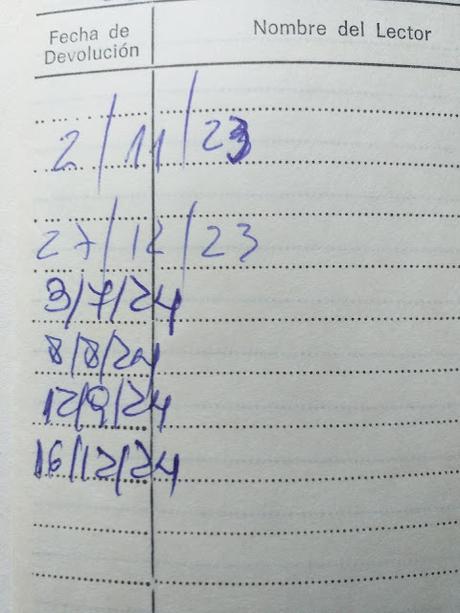 Fecha de Nombre del Lector
Devolución
2/11/23
27/12/23
3/7/24
8/8/24
12/9/24
16/12/24